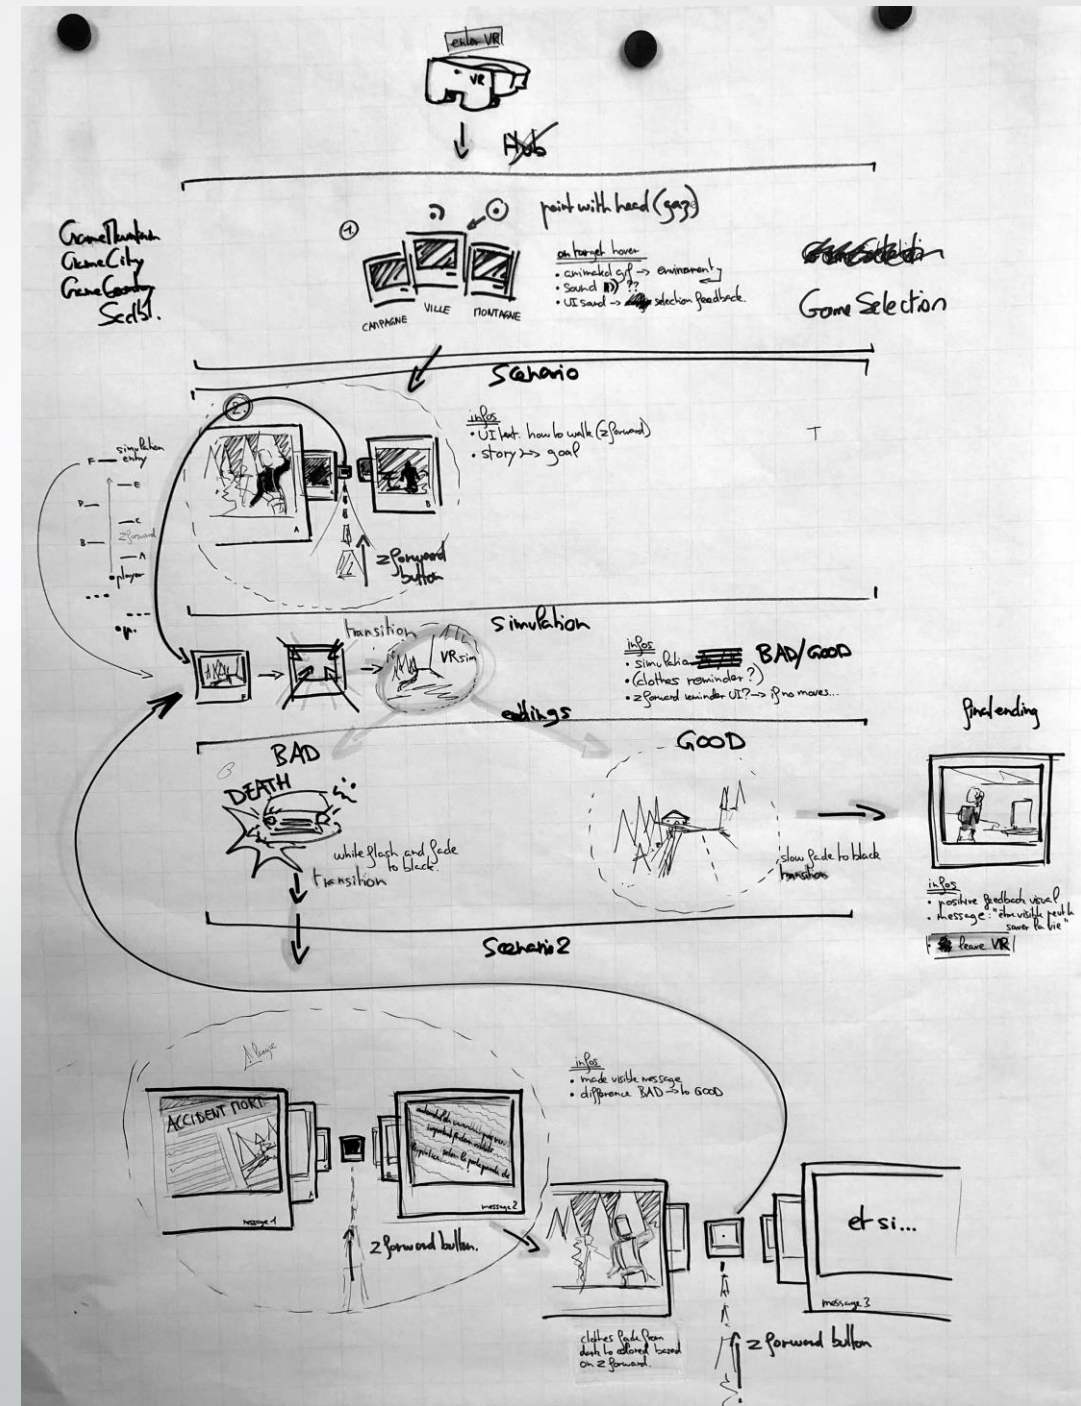 enter VR
VR
Hub
point with head (gaz)
GameMountain
GameCity
GameCountry
1
on target hover
• animated gif → environment
• Sound ??
• UI sound → selection feedback.
Game Selection
CAMPAGNE
VILLE
MONTAGNE
Scenario
2
infos
• UI text. how to walk (z forward)
• story → goal
T
simulation
entry
F
E
D
C
z forward
B
A
player
A
B
z forward
button
Simulation
transition
VR sim
F
infos
• simulation BAD/GOOD
• (clothes reminder?)
• z forward reminder UI? → if no moves...
endings
BAD
DEATH
white flash and fade
to black.
transition
GOOD
slow fade to black
transition
final ending
infos
• positive feedback visual
• message: "être visible peut te
sauver la vie"
leave VR
Scenario 2
infos
• made visible message
• difference BAD → to GOOD
ACCIDENT MORT
message 1
message 2
z forward button.
et si...
message 3
clothes fade from
dark to colored based
on z forward.
z forward button